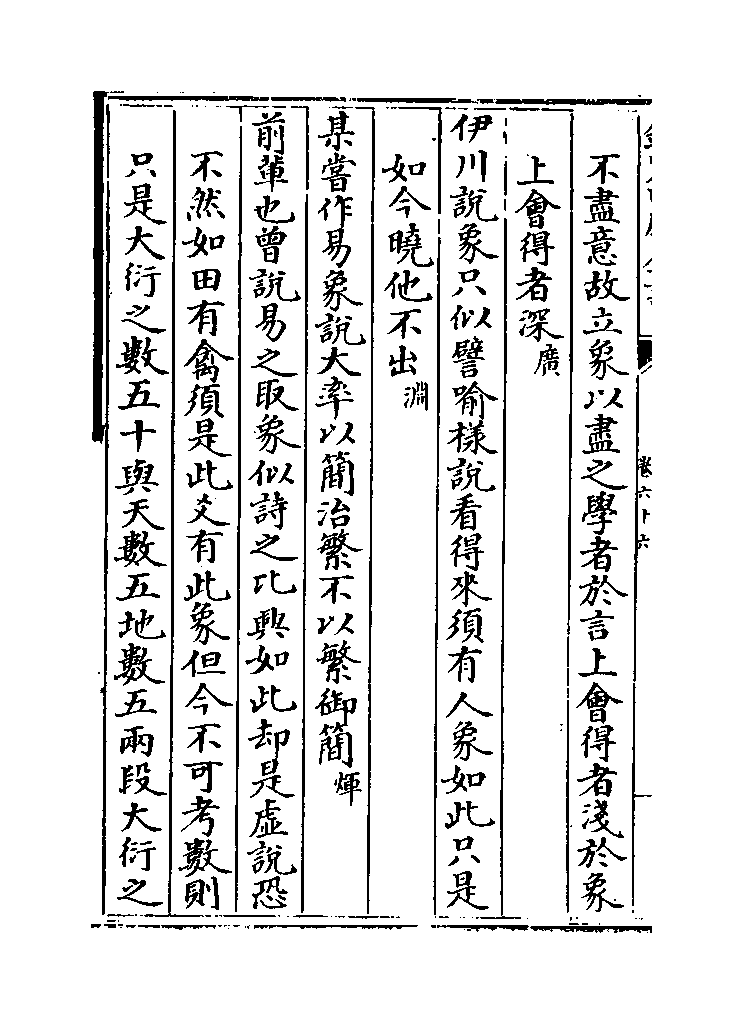 不盡意故立象以盡之學者於言上會得者淺於象
上會得者深廣
伊川說象只似譬喻樣說看得來須有人象如此只是
如今曉他不出淵
某嘗作易象說大率以簡治繁不以繁御簡煇
前輩也曾說易之取象似詩之比興如此却是虛說恐
不然如田有禽須是此爻有此象但今不可考數則
只是大衍之數五十與天數五地數五兩段大衍之
卷六十六